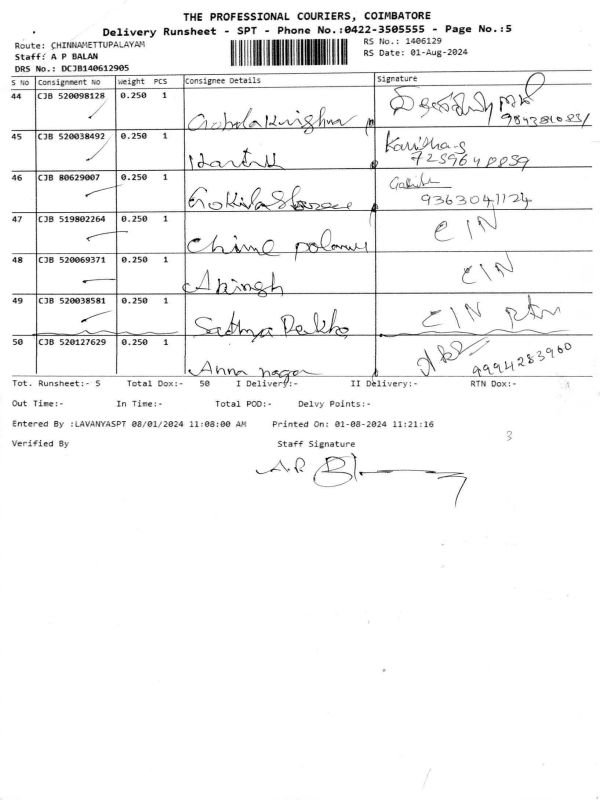 THE PROFESSIONAL COURIERS, COIMBATORE
Delivery Runsheet - SPT - Phone No.:0422-3505555 - Page No.:5
Route: CHINNAMETTUPALAYAM
RS No.: 1406129
Staff: A P BALAN
RS Date: 01-Aug-2024
DRS No.: DCJB140612905
S No Consignment No Weight PCS Consignee Details Signature
44 CJB 520098128 0.250 1 Gopalakrishna
45 CJB 520038492 0.250 1 Karthik Kavitha.g
7259648859
46 CJB 80629007 0.250 1
9363041124
47 CJB 519802264 0.250 1 CIN
48 CJB 520069371 0.250 1 CIN
49 CJB 520038581 0.250 1 Sathya CIN
50 CJB 520127629 0.250 1 Anna nagar 9994283960
Tot. Runsheet:- 5 Total Dox:- 50 I Delivery:- II Delivery:- RTN Dox:-
Out Time:- In Time:- Total POD:- Delvy Points:-
Entered By :LAVANYASPT 08/01/2024 11:08:00 AM Printed On: 01-08-2024 11:21:16
Verified By Staff Signature
3
A.P.